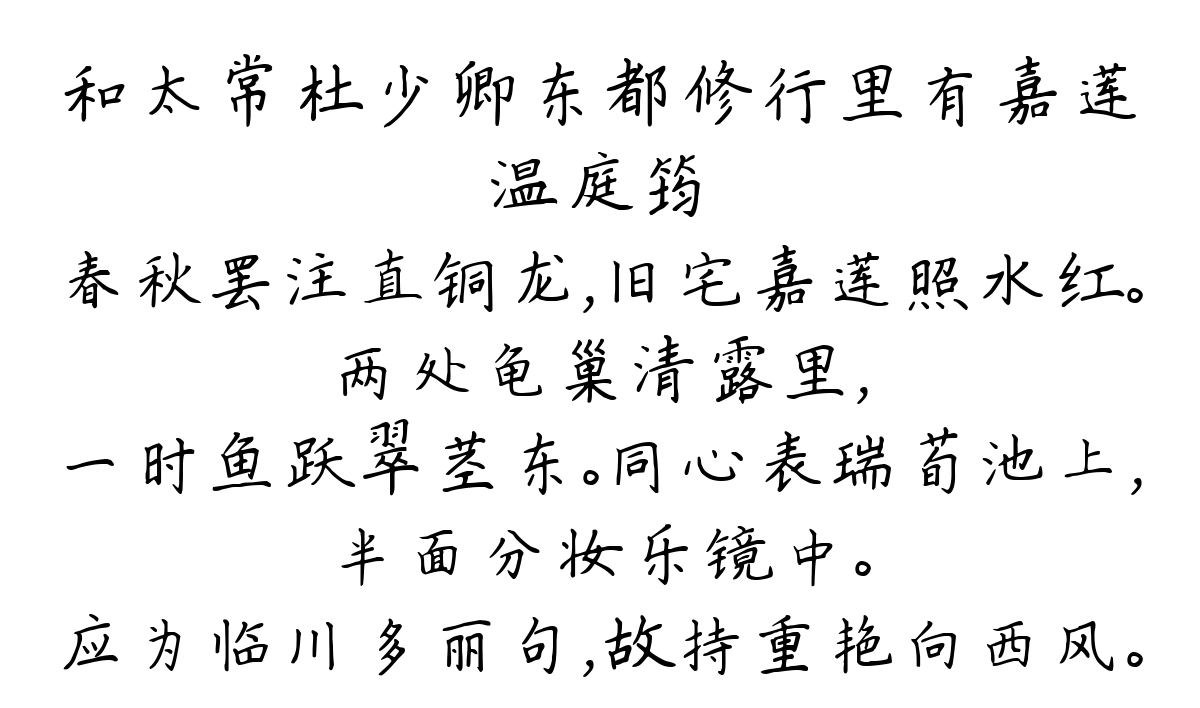 和太常杜少卿东都修行里有嘉莲
温庭筠
春秋罢注直铜龙,旧宅嘉莲照水红。
两处龟巢清露里,
一时鱼跃翠茎东。同心表瑞荀池上,
半面分妆乐镜中。
应为临川多丽句,故持重艳向西风。